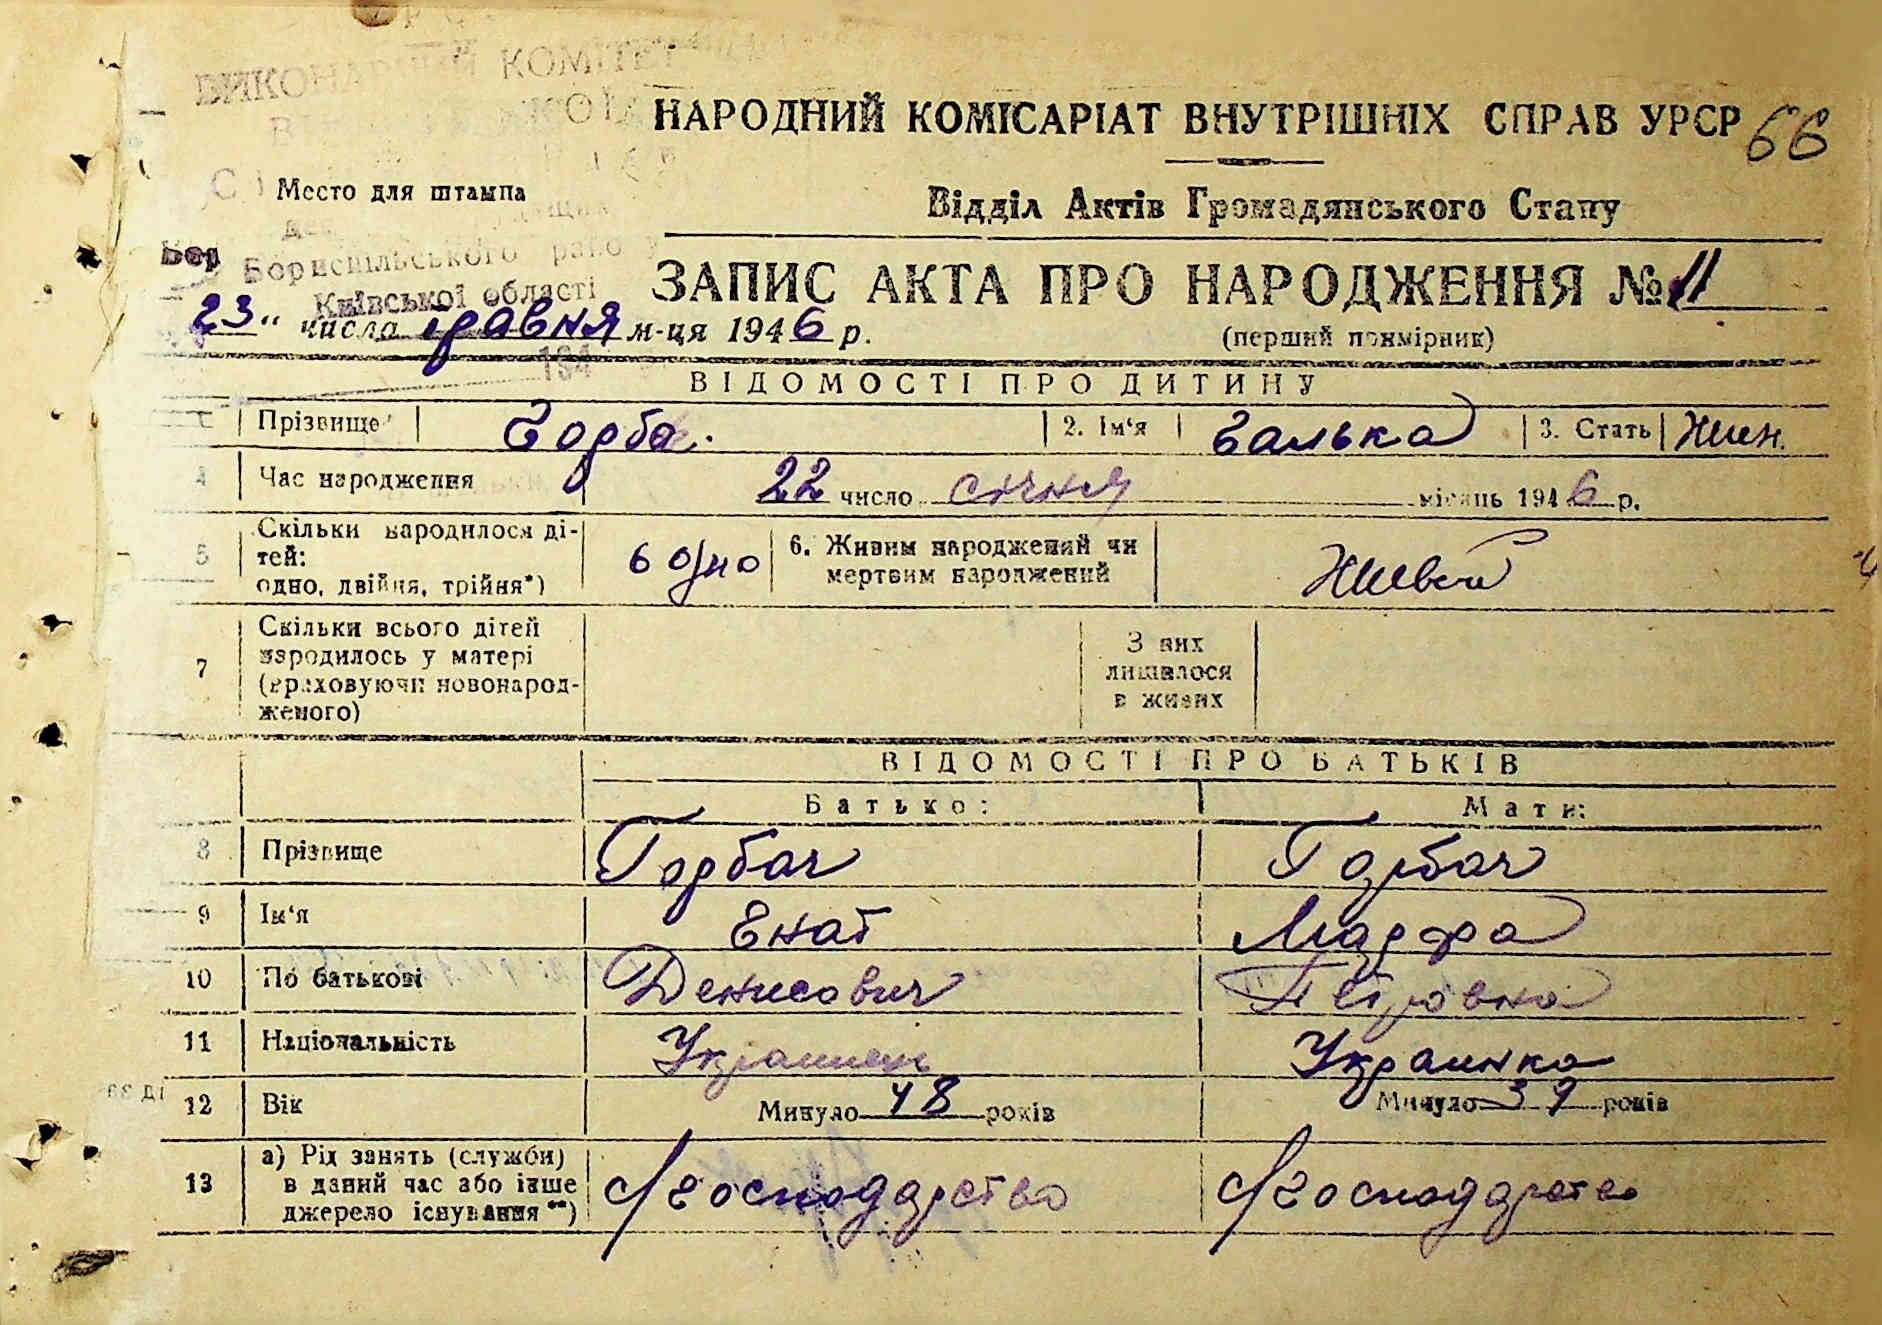 ВИКОНАВЧИЙ КОМІТЕТ
НАРОДНИЙ КОМІСАРІАТ ВНУТРІШНІХ СПРАВ УРСР 66
Место для штампа
Відділ Актів Громадянського Стану
Бориспільського
Київської області
ЗАПИС АКТА ПРО НАРОДЖЕННЯ № 11
23 " числа травня м-ця 1946 р.
(перший примірник)
194
ВІДОМОСТІ ПРО ДИТИНУ
Прізвище Горбач. 2. Ім'я Галька 3. Стать Жін.
4 Час народження 22 число січня місяць 1946 р.
5 Скільки народилося ді-
тей:
одно, двійня, трійня*) одно 6. Живим народжений чи
мертвим народжений Живой
7 Скільки всього дітей
народилось у матері
(враховуючи новонарод-
женого)
З них
лишилося
в живих
ВІДОМОСТІ ПРО БАТЬКІВ
Батько: Мати:
8 Прізвище Горбач Горбач
9 Ім'я Енат Марфа
10 По батькові Денисович Петровна
11 Національність Украинец Украинка
12 Вік Минуло 48 років Минуло 39 років
13 а) Рід занять (служби)
в даний час або інше
джерело існування **) с/господарство с/господарство